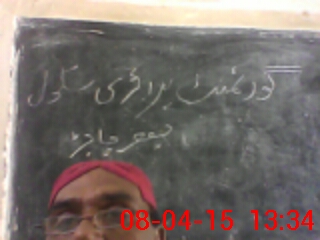 گورنمنٹ پرائمری سکول
08-04-15 13:34